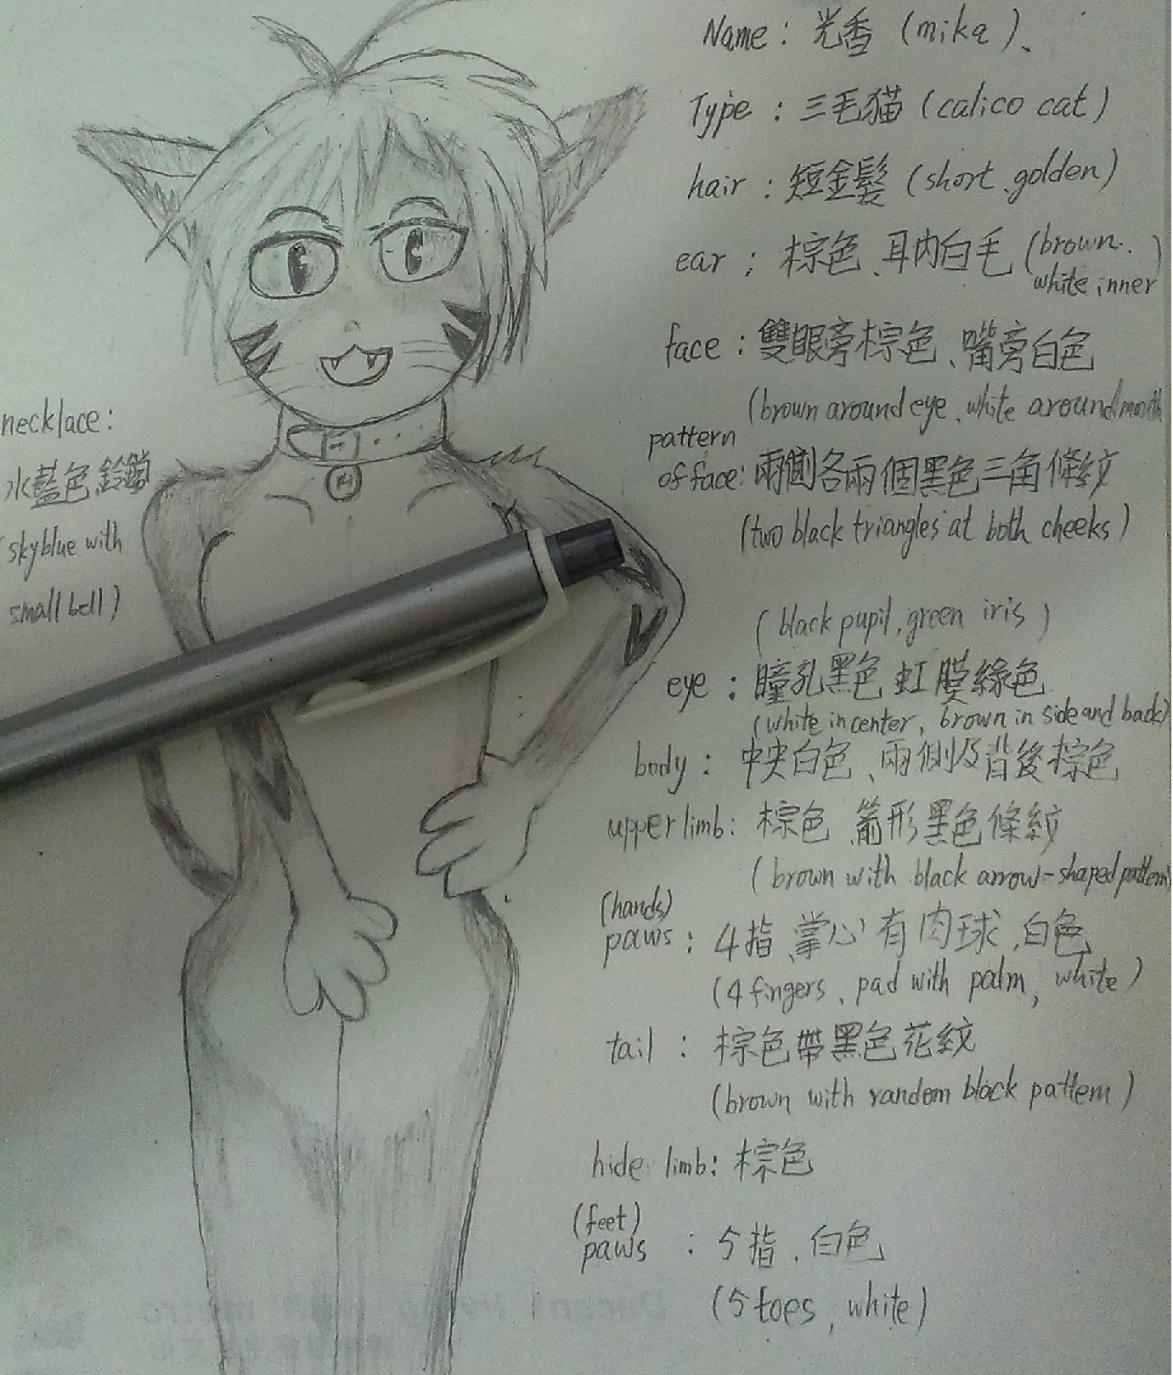 Name : 光香 (mika)、
Type : 三毛猫 (calico cat)
hair : 短金髮 (short、golden)
ear : 棕色、耳内白毛 (brown.
white inner
face : 雙眼旁棕色、嘴旁白色
(brown around eye、white around mouth
pattern
of face: 兩側各兩個黑色三角條紋
(two black triangles at both cheeks)
necklace:
水藍色鈴鐺
(skyblue with
small bell)
(black pupil, green iris)
eye : 瞳孔黑色 虹膜綠色
(white in center, brown in side and back)
body : 中央白色、兩側及背後棕色
upper limb: 棕色 箭形黑色條紋
(brown with black arrow-shaped pattern)
(hands)
paws : 4指、掌心有肉球、白色
(4 fingers、pad with palm, white)
tail : 棕色帶黑色花紋
(brown with random black pattern)
hide limb: 棕色
(feet)
paws : 5指、白色
(5 toes, white)